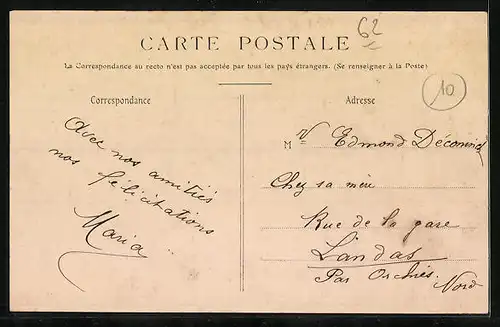 62
CARTE POSTALE
La Correspondance au recto n'est pas acceptée par tous les pays étrangers. (Se renseigner à la Poste)
10
Correspondance
Avec nos amitiés
nos félicitations
Maria
Adresse
M Edmond
Chez sa mère
Rue de la gare
Landas
Par Orchies
Nord